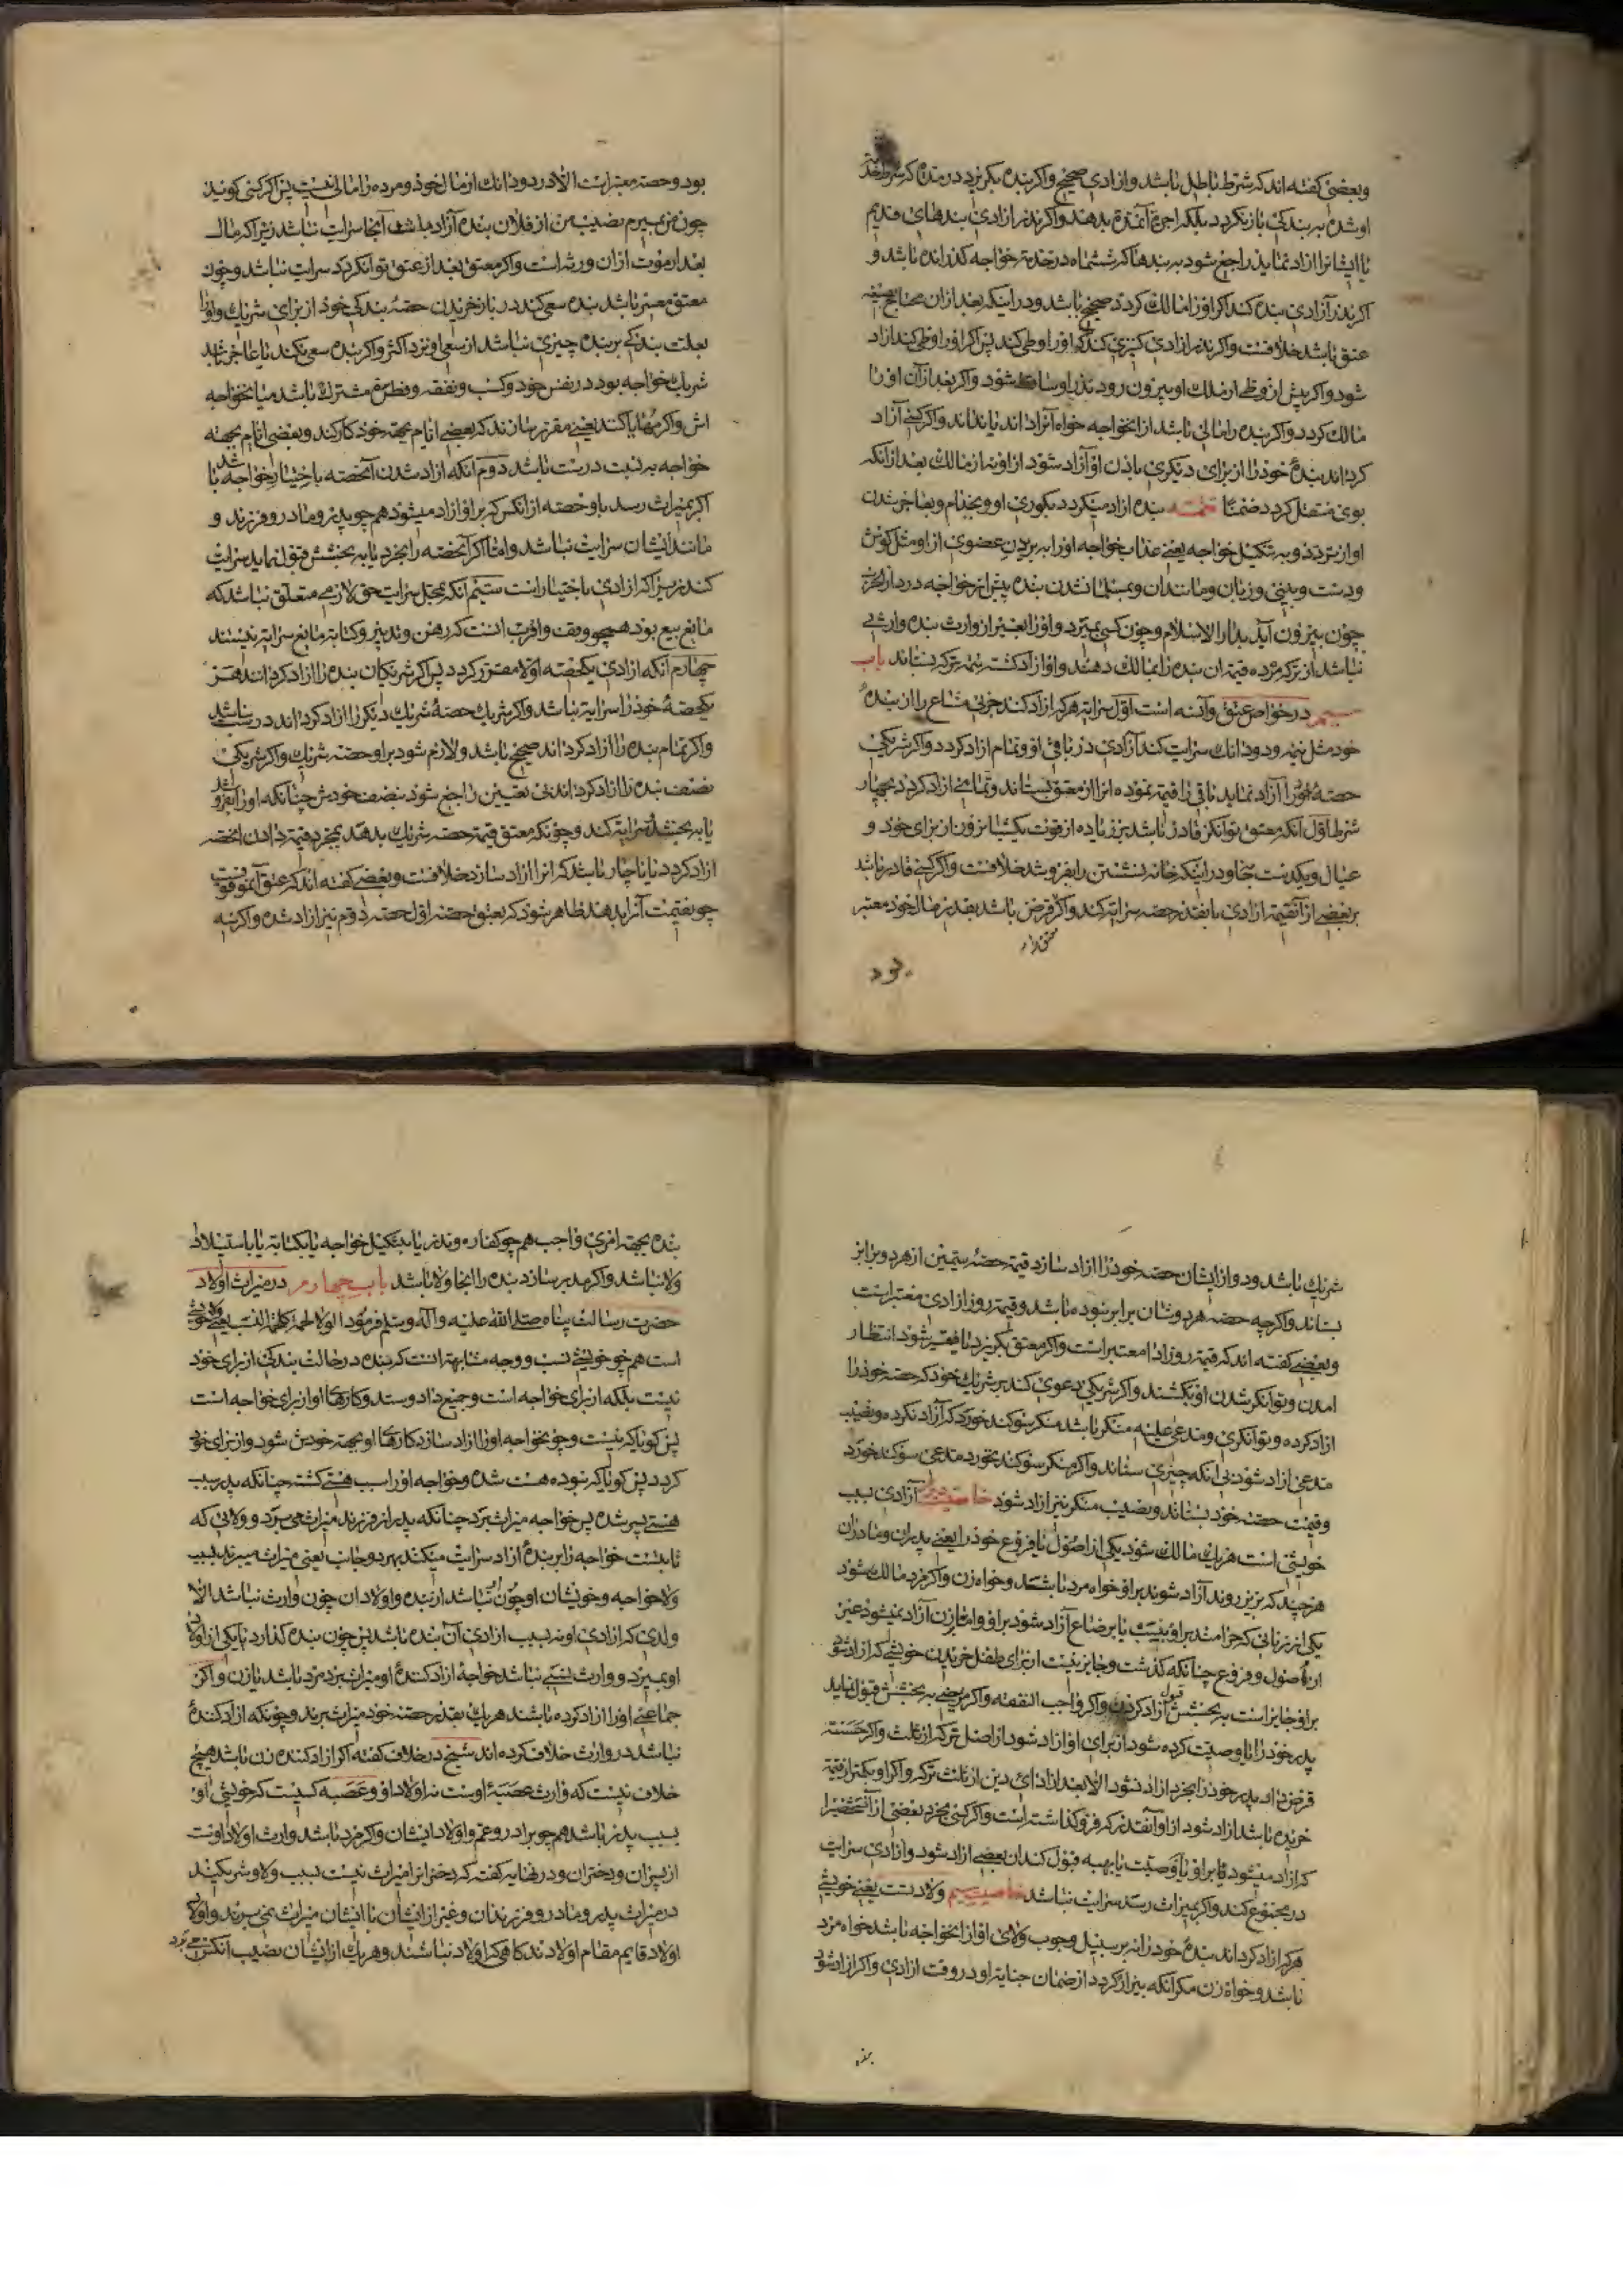 وبعضی کفته اند که شرط باطل باشد و ازادی صحیح و اکر بنده بکریزد در مدة که شرط خدمة
او شده به بندکی باز نکردد بلکه اجرة آنمدة بدهند و اکر نذر ازادی بندهای قدیم
تا ایشانرا ازاد نماید راجع شود به بندها که ششماه در خدمة خواجه کذرانده باشد و
اکر نذر آزادی بنده کند اکر اورا مالک کردد صحیح باشد و در اینکه بعد ازان محتاج بصیغه
عتق باشد خلافست و اکر نذر ازادی کنیزی کند که اورا وطی کند پس اکر اورا وطی کند ازاد
شود و اکر پیش از وطی از ملک او بیرون رود نذر او ساقط شود و اکر بعد از آن اورا
مالک کردد و اکر بنده را مالی باشد از انخواجه خواه آنرا داند یا نداند و اکر کسی آزاد
کرداند بندۀ خود را از برای دیکری باذن او آزاد شود از او نه از مالک بعد از انکه
بوی منتقل کردد ضمنا تتمه بنده ازاد میکردد بکوری او و بجذام و بعاجز شدن
او از تردد و به تنکیل خواجه یعنی عذاب خواجه اورا به بریدن عضوی از او مثل کوش
و دست و بینی و زبان و مانند ان و بمسلمانشدن بنده پیش از خواجه در دار الحرب
چون بیرون آید بدار الاسلام و چون کسی بمیرد و اورا بغیر از وارث بنده وارثی
نباشد از ترکه مرده قیمة ان بنده را بمالک دهند و او ازاد کشته تتمه ترکه بستاند باب
سیم در خواص عتق و آن سه است اول سرایة هرکه ازاد کند جزئی مشاع را از بندۀ
خود مثل نیمه و دو دانک سرایت کند آزادی در باقی او و تمام ازاد کردد و اکر شریکی
حصۀ خود را آزاد نماید باقی را قیمة نموده انرا از معتق بستاند و تمامی ازاد کردد بچهار
شرط اول انکه معتق توانکر قادر باشد بر زیاده از قوت یکشبانروز از برای خود و
عیال و یکدست جامه و در اینکه خانه نشستن را بفروشد خلافست و اکر کسی قادر باشد
بر بعضی از آنقیمة ازادی بانقدر حصه سرایة کند و اکر قرض باشد بقدر مال خود معتبر
بود
بود و حصه معتبر است الا در دو دانک از مال خود و مرده را مالی نیست پس اکر کسی کوید
چون من بمیرم نصیب من از فلان بنده آزاد باشد آنجا سرایت نباشد زیرا که مال
بعد از موت ازان ورثه است و اکر معتق بعد از عتق توانکر کردد سرایت نباشد و چون
معتق معسر باشد بنده سعی کند در باز خریدن حصۀ بندکی خود از برای شریک و اورا
بعلت بندکی بر بنده چیزی نباشد از سعی او نزد اکثر و اکر بنده سعی نکند یا عاجز باشد
شریک خواجه بود در نفس خود و کسب و نفقه و فطرة مشترک باشد میانخواجه
اش و اکر مهایاة کنند یعنی مقرر سازند که بعضی ایام بجهة خود کار کند و بعضی ایام بجهة
خواجه به نسبت درست باشد دوم آنکه ازاد شدن آنحصه باختیار خواجه باشد تا
اکر بمیراث رسد باو حصه از انکس که بر او ازاد میشود همچو پدر و مادر و فرزند و
مانند ایشان سرایت نباشد و اما اکر آنحصه را بخرد یا به بخشش قبول نماید سرایت
کند زیرا که ازادی باختیار است سیم آنکه بمحل سرایت حق لازمی متعلق نباشد که
مانع بیع بود همچو وقف و اقرب انست که رهن و تدبیر و کتابة مانع سرایة نیستند
چهارم آنکه ازادی یکحصه اولا مقرر کردد پس اکر شریکان بنده را ازاد کردانند هر
یکحصۀ خود را سرایة نباشد و اکر شریک حصۀ شریک دیکر را ازاد کرداند درست نباشد
و اکر تمام بنده را ازاد کرداند صحیح باشد و لازم شود بر او حصه شریک و اکر شریکی
نصف بنده را ازاد کرداند بی تعیین راجع شود بنصف خودش چنانکه اورا بفروشد
یا به بخشد سرایة کند و چونکه معتق قیمة حصه شریک بدهد بمجرد قیمة دادن انحصه
ازاد کردد یا ناچار باشد که انرا ازاد سازد خلافست و بعضی کفته اند که عتق آن موقوفست
چو بقیمت آنرا بدهد ظاهر شود که بعتق حصه اول حصه دوم نیز ازاد شده و اکر سه
شریک باشد و دو از ایشان حصه خود را ازاد سازد قیمة حصۀ سیمین از هر دو برابر
بستاند و اکرچه حصه هر دوشان برابر نبوده باشد و قیمة روز ازادی معتبر است
و بعضی کفته اند که قیمة روز ادا معتبر است و اکر معتق بکریزد یا فقیر شود انتظار
امدن و توانکر شدن او بکشند و اکر شریکی دعوی کند بر شریک خود که حصه خود را
ازاد کرده و توانکری و مدعی علیه منکر باشد منکر سوکند خورد که آزاد نکرده و نصیب
مدعی ازاد شود بی انکه چیزی ستاند و اکر منکر سوکند نخورد مدعی سوکند خورد
و قیمت حصه خود بستاند و نصیب منکر نیز ازاد شود خاصیت دوم آزادی بسبب
خویشی است هر یک مالک شود یکی از اصول یا فروع خود را یعنی پدران و مادران
هرچند که برتر روند آزاد شوند بر او خواه مرد باشد و خواه زن و اکر مرد مالک شود
یکی از زنانی که حرامند بر او بنسب یا برضاع آزاد شود بر او و اما بر زن آزاد نمیشود غیر
از اصول و فروع چنانکه کذشت و جایز نیست از برای طفل خریدن خویشی که ازاد شود
بر او و جایز است به بخشش قبول آزاد کردن و اکر واجب النفقه و اکر مریضی به بخشش قبول نماید
پدر خود را یا وصیت کرده شود از برای او ازاد شود از اصل ترکه از ثلث و اکر حسته
قرض دارد پدر خود را بخرد ازاد نشود الا بعد از ادای دین از ثلث ترکه و اکر او بکمتر از قیمة
خریده باشد ازاد شود از او آنقدر که فرو کذاشته است و اکر کسی بخرد بعضی از آنشخص را
که ازاد میشود بر او یا بوصیت یا بهبه قبول کند ان بعضی ازاد شود و ازادی سرایت
در مجموع کند و اکر بمیراث رسد سرایت نباشد خاصیت سیم ولاء است یعنی خویشی
هرکه ازاد کرداند بندۀ خود را نه بر سبیل وجوب ولای او از انخواجه باشد خواه مرد
باشد و خواه زن مکر آنکه بیزار کردد از ضمان جنایة او در وقت ازادی و اکر ازاد شود
بنده
بنده بجهة امری واجب همچو کفاره و نذر یا بتنکیل خواجه یا بکتابة یا باستیلاد
ولا نباشد و اکر مدبر سازد بنده را انجا ولا باشد باب چهارم در میراث اولاد
حضرت رسالت پناه صلی الله علیه و آله وسلم فرمود الولاء لحمة کلحمة النسب یعنی ولا خویشی
است همچو خویشی نسب و وجه مشابهة انست که بنده در حالت بندکی از برای خود
نیست بلکه از برای خواجه است و جمیع داد و ستد و کارهای او از برای خواجه است
پس کویا که نیست و چو خواجه اورا ازاد سازد کارهای او بجهة خودش شود و از برای خود
کردد پس کویا که نبوده هست شده و خواجه اورا سبب هستی کشته چنانکه پدر سبب
هستی پسر شده پس خواجه میراث برد چنانکه پدر از فرزند میراث می برد و ولائی که
ثابتست خواجه را بر بندۀ ازاد سرایت میکند بهر دو جانب یعنی میراث میبرند بسبب
ولا خواجه و خویشان او چون نباشد از بنده و اولاد ان چون وارث نباشد الا
ولدی که ازادی او نه بسبب ازادی آن بنده باشد پس چون بنده کذارد یا یکی از اولاد
او بمیرد و وارث نسبی نباشد خواجۀ ازاد کنندۀ او میراث برد مرد باشد یا زن و اکر
جماعتی اورا ازاد کرده باشند هر یک بقدر حصه خود میراث برند و چونکه ازاد کنندۀ
نباشد در وارث خلاف کرده اند شیخ در خلاف کفته اکر ازاد کننده زن باشد هیچ
خلاف نیست که وارث عصبۀ اوست نه اولاد او و عصبه کسیست که خویشی او
بسبب پدر باشد همچو برادر و عم و اولاد ایشان و اکر مرد باشد وارث اولاد اوست
از پسران و دختران و در نهایه کفته که دختر انرا میراث نیست بسبب ولا و شریکند
در میراث پدر و مادر و فرزندان و غیر از ایشان با ایشان میراث نمی برند و اولاد
اولاد قایم مقام اولادند کاهی که اولاد نباشند و هر یک از ایشان نصیب آنکس می برد